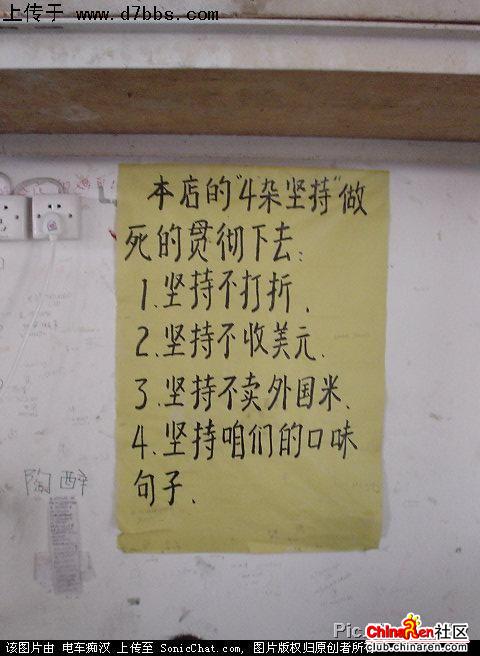 上传于 www.d7bbs.com
本店的"4杂坚持"做
死的贯彻下去:
1.坚持不打折.
2.坚持不收美元.
3.坚持不卖外国米.
4.坚持咱们的口味
句子.
陶醉
ChinaRen社区
club.chinaren.com
该图片由 电车痴汉 上传至 SonicChat.com, 图片版权归原创者所